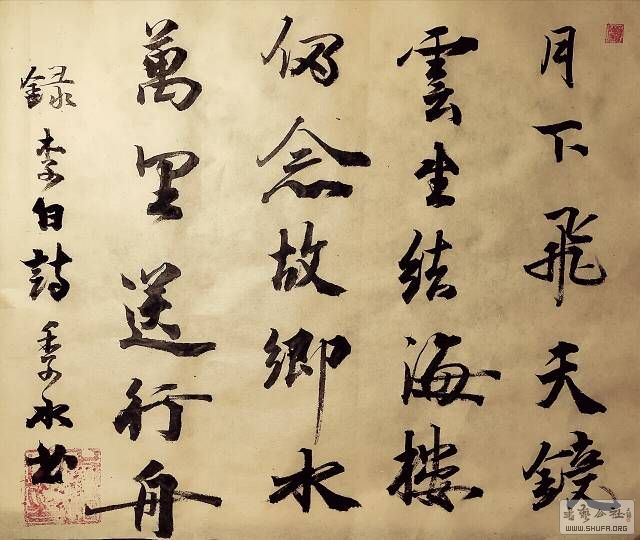 月下飛天鏡
雲生結海樓
仍念故鄉水
萬里送行舟
錄李白詩季永书
书艺公社
WWW.SHUFA.ORG